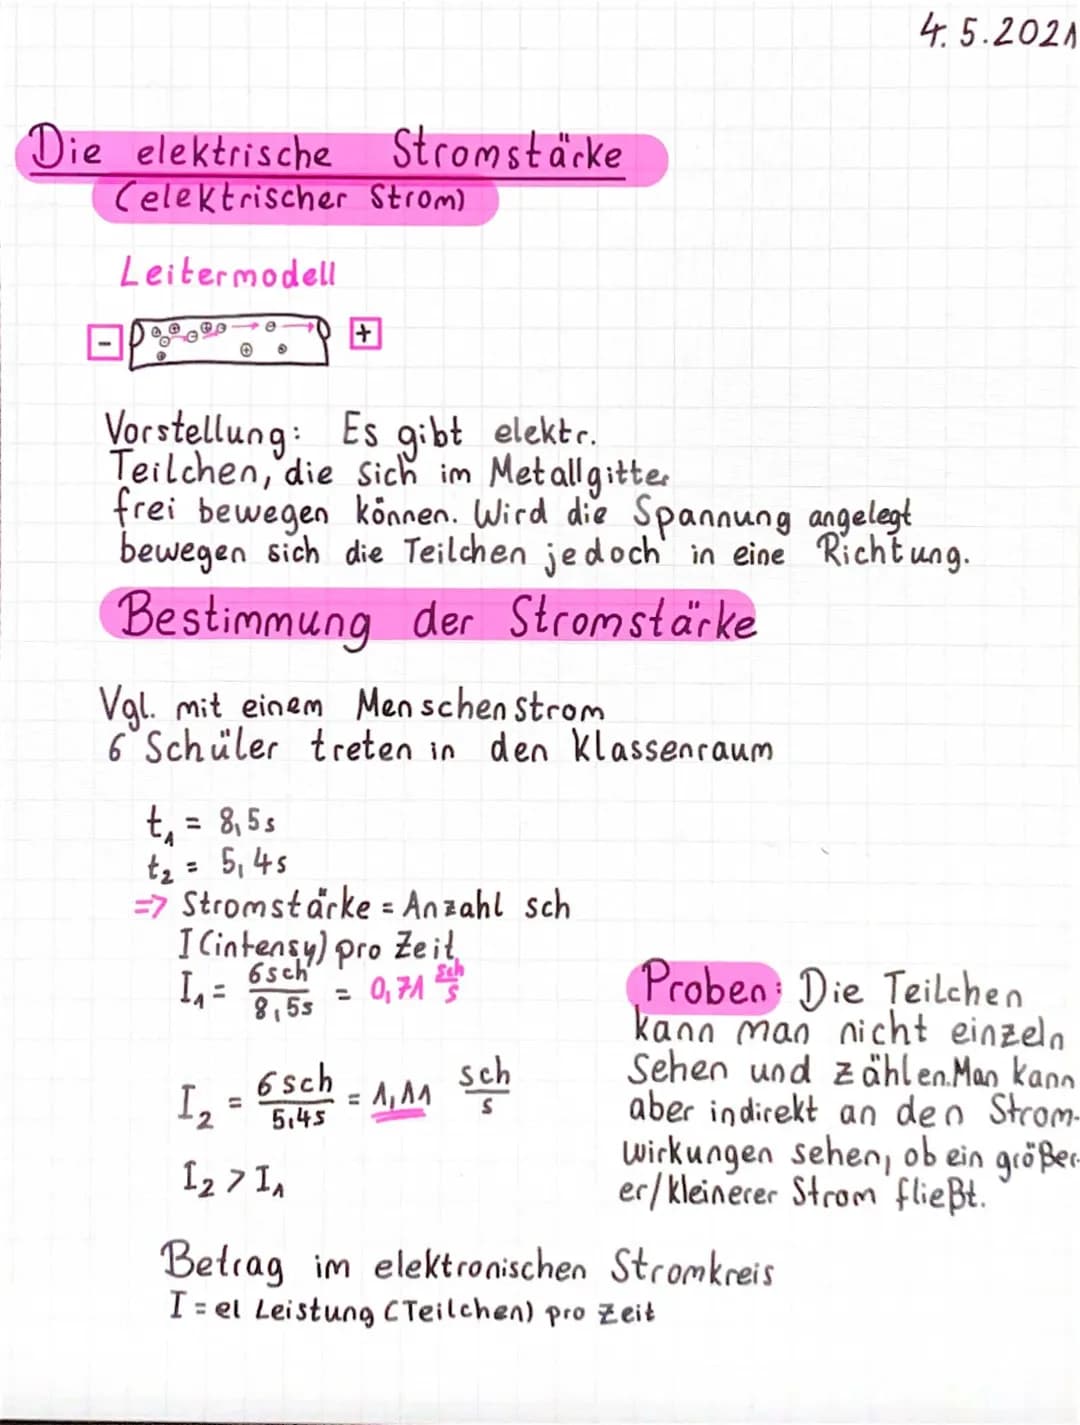 4.5.2021
Die elektrische Stromstärke
(elektrischer Strom)
Leitermodell
- +
Vorstellung: Es gibt elektr.
Teilchen, die sich im Metallgitter
frei bewegen können. Wird die Spannung angelegt
bewegen sich die Teilchen jedoch in eine Richtung.
Bestimmung der Stromstärke
Vgl. mit einem Menschenstrom
6 Schüler treten in den Klassenraum
t₁ = 8,5s
t₂ = 5,4s
=> Stromstärke = Anzahl sch
I (intensy) pro Zeit
I₁ = 6sch/8,5s = 0,71 Sch/s
I₂ = 6sch/5,4s = 1,11 sch/s
I₂ > I₁
Proben: Die Teilchen
kann man nicht einzeln
Sehen und zählen. Man kann
aber indirekt an den Strom-
wirkungen sehen, ob ein größer-
er/kleinerer Strom fließt.
Betrag im elektronischen Stromkreis
I = el Leistung (Teilchen) pro Zeit